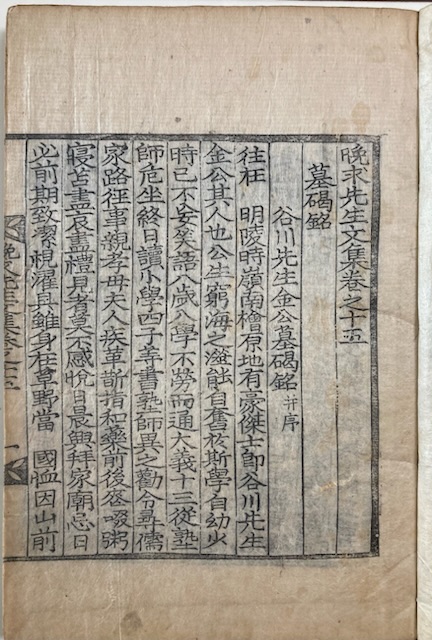 晩求先生文集卷之十五
墓碣銘
谷川先生金公墓碣銘 幷序
往在 明陵時嶺南檜原地有豪傑士卽谷川先生
金公其人也公生窮海之澨能自奮於斯學自幼少
時已不妄笑語八歲入學不勞而通大義十三從塾
師危坐終日讀小學四子等書塾師異之勸令尋儒
家路徑事親孝母夫人疾革斫指和藥前後廬啜粥
寢苫盡哀盡禮見者莫不感悅日晨興拜家廟忌日
必前期致潔視濯且雖身在草野當 國恤因山前
晩求先生文集卷之十五 一